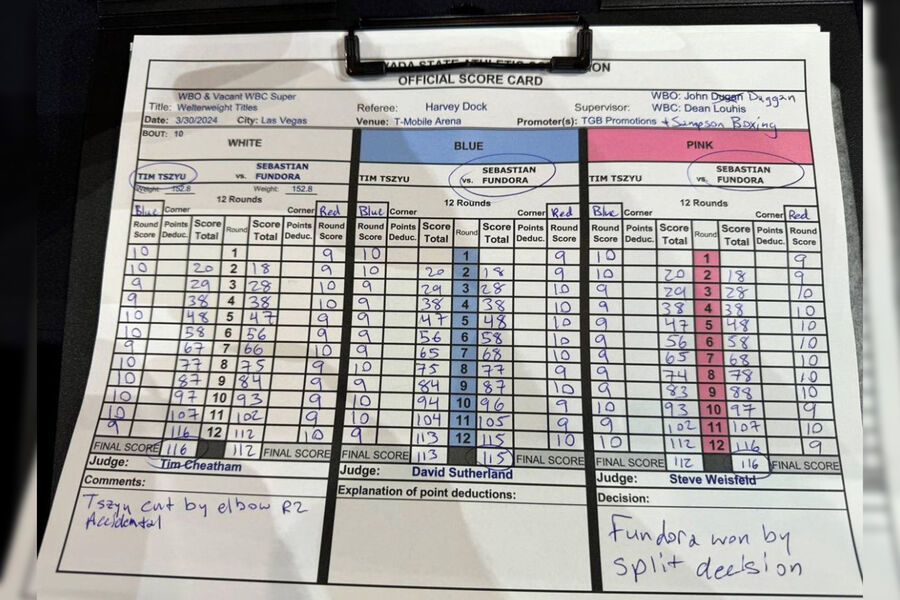 ADA STATE ATHLETIC COMMISSION
OFFICIAL SCORE CARD
WBO & Vacant WBC Super
Title: Welterweight Titles
Referee: Harvey Dock
Supervisor: WBO: John Dugan Duggan
WBC: Dean Louhis
Date: 3/30/2024 City: Las Vegas Venue: T-Mobile Arena Promoter(s): TGB Promotions + Sampson Boxing
BOUT: 10
WHITE BLUE PINK
TIM TSZYU vs. SEBASTIAN FUNDORA TIM TSZYU vs. SEBASTIAN FUNDORA TIM TSZYU vs. SEBASTIAN FUNDORA
Weight: 152.8 Weight: 152.8
12 Rounds 12 Rounds 12 Rounds
Blue Corner Corner Red Blue Corner Corner Red Blue Corner Corner Red
Round Score Points Deduc. Score Total Round Score Total Points Deduc. Round Score Round Score Points Deduc. Score Total Round Score Total Points Deduc. Round Score Round Score Points Deduc. Score Total Round Score Total Points Deduc. Round Score
10 1 9 10 1 9 10 1 9
10 20 2 18 9 10 20 2 18 9 10 20 2 18 9
9 29 3 28 10 9 29 3 28 10 9 29 3 28 10
9 38 4 38 10 9 38 4 38 10 9 38 4 38 10
10 48 5 47 9 9 47 5 48 10 9 47 5 48 10
10 58 6 56 9 9 56 6 58 10 9 56 6 58 10
9 67 7 66 10 9 65 7 68 10 9 65 7 68 10
10 77 8 75 9 10 75 8 77 9 9 74 8 78 10
10 87 9 84 9 9 84 9 87 10 9 83 9 88 10
10 97 10 93 9 10 94 10 96 9 10 93 10 97 9
10 107 11 102 9 10 104 11 105 9 9 102 11 107 10
9 116 12 112 10 9 113 12 115 10 10 112 12 116 9
FINAL SCORE 116 112 FINAL SCORE FINAL SCORE 113 115 FINAL SCORE FINAL SCORE 112 116 FINAL SCORE
Judge: Tim Cheatham Judge: David Sutherland Judge: Steve Weisfeld
Comments: Explanation of point deductions: Decision:
Tszyu cut by elbow R2
Accidental
Fundora won by
split decision